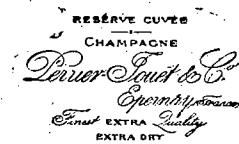 RESERVE CUVÉE
CHAMPAGNE
Perrier-Jouët & Co
Epernay France
Finest EXTRA Quality
EXTRA DRY